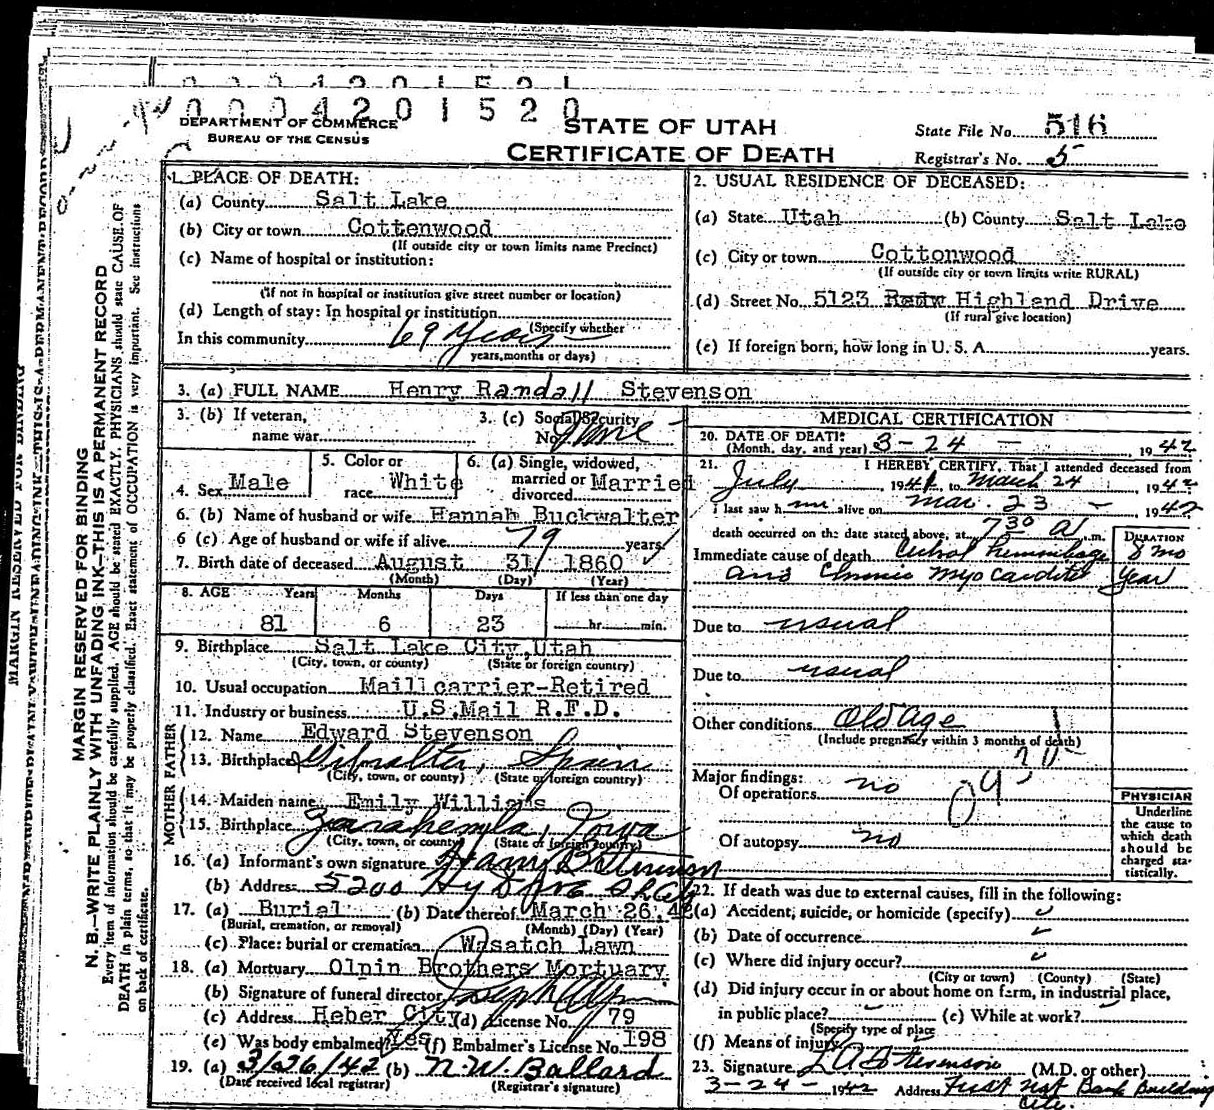 0004201521
0004201520
DEPARTMENT OF COMMERCE
BUREAU OF THE CENSUS
STATE OF UTAH
CERTIFICATE OF DEATH
State File No. 516
Registrar's No. 5
MARGIN RESERVED FOR BINDING
N. B.—WRITE PLAINLY WITH UNFADING INK—THIS IS A PERMANENT RECORD
Every item of information should be carefully supplied. AGE should be stated EXACTLY. PHYSICIANS should state CAUSE OF
DEATH in plain terms, so that it may be properly classified. Exact statement of OCCUPATION is very important. See instructions
on back of certificate.
1. PLACE OF DEATH:
(a) County Salt Lake
(b) City or town Cottenwood
(If outside city or town limits name Precinct)
(c) Name of hospital or institution:
(If not in hospital or institution give street number or location)
(d) Length of stay: In hospital or institution
(Specify whether
In this community 69 Years
years, months or days)
2. USUAL RESIDENCE OF DECEASED:
(a) State Utah (b) County Salt Lake
(c) City or town Cottonwood
(If outside city or town limits write RURAL)
(d) Street No. 5123 Highland Drive
(If rural give location)
(e) If foreign born, how long in U. S. A. years.
3. (a) FULL NAME Henry Randall Stevenson
3. (b) If veteran,
name war
3. (c) Social Security
No. None
4. Sex Male
5. Color or
race White
6. (a) Single, widowed,
married or
divorced Married
6. (b) Name of husband or wife Hannah Buckwalter
6 (c) Age of husband or wife if alive 79 years
7. Birth date of deceased August 31 1860
(Month) (Day) (Year)
8. AGE Years Months Days If less than one day
81 6 23 hr. min.
9. Birthplace Salt Lake City, Utah
(City, town, or county) (State or foreign country)
10. Usual occupation Mail carrier-Retired
11. Industry or business U.S.Mail R.F.D.
FATHER
12. Name Edward Stevenson
13. Birthplace Gibralter, Spain
(City, town, or county) (State or foreign country)
MOTHER
14. Maiden name Emily Williams
15. Birthplace Zarahemla, Iowa
(City, town, or county) (State or foreign country)
16. (a) Informant's own signature
(b) Address 5200
17. (a) Burial (b) Date thereof March 26, 42
(Burial, cremation, or removal) (Month) (Day) (Year)
(c) Place: burial or cremation Wasatch Lawn
18. (a) Mortuary Olpin Brothers Mortuary
(b) Signature of funeral director
(c) Address Heber City (d) License No. 79
(e) Was body embalmed? Yes (f) Embalmer's License No. 198
19. (a) 3/26/42 (b) N. W. Ballard
(Date received local registrar) (Registrar's signature)
MEDICAL CERTIFICATION
20. DATE OF DEATH:
(Month, day, and year) 3-24- 1942
21. I HEREBY CERTIFY, That I attended deceased from
July 1941, to March 24, 1942
I last saw him alive on Mar. 23 - 1942
death occurred on the date stated above, at 7:30 a. m.
DURATION
Immediate cause of death Cerebral Hemorrhage 8 mo
and Chronic Myocarditis Year
Due to usual
Due to usual
Other conditions Old Age
(Include pregnancy within 3 months of death)
Major findings:
Of operations no
Of autopsy no
PHYSICIAN
Underline
the cause to
which death
should be
charged sta-
tistically.
22. If death was due to external causes, fill in the following:
(a) Accident, suicide, or homicide (specify)
(b) Date of occurrence
(c) Where did injury occur?
(City or town) (County) (State)
(d) Did injury occur in or about home on farm, in industrial place,
in public place? (e) While at work?
(Specify type of place
(f) Means of injury
23. Signature L. A. Stevenson (M.D. or other)
3-24- 1942 Address First Nat Bank Building
City.